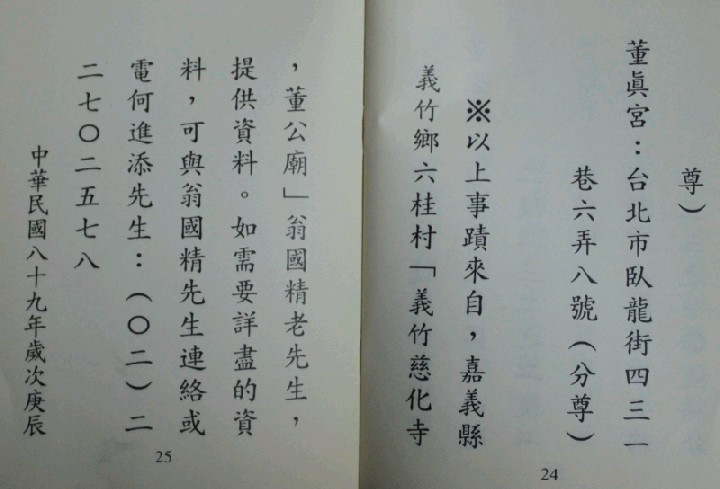 尊）
董眞宮：台北市臥龍街四三一
巷六弄八號（分尊）
※以上事蹟來自，嘉義縣
義竹鄉六桂村「義竹慈化寺
24
，董公廟」翁國精老先生，
提供資料。如需要詳盡的資
料，可與翁國精先生連絡或
電何進添先生：（〇二）二
二七〇二五七八
中華民國八十九年歲次庚辰
25